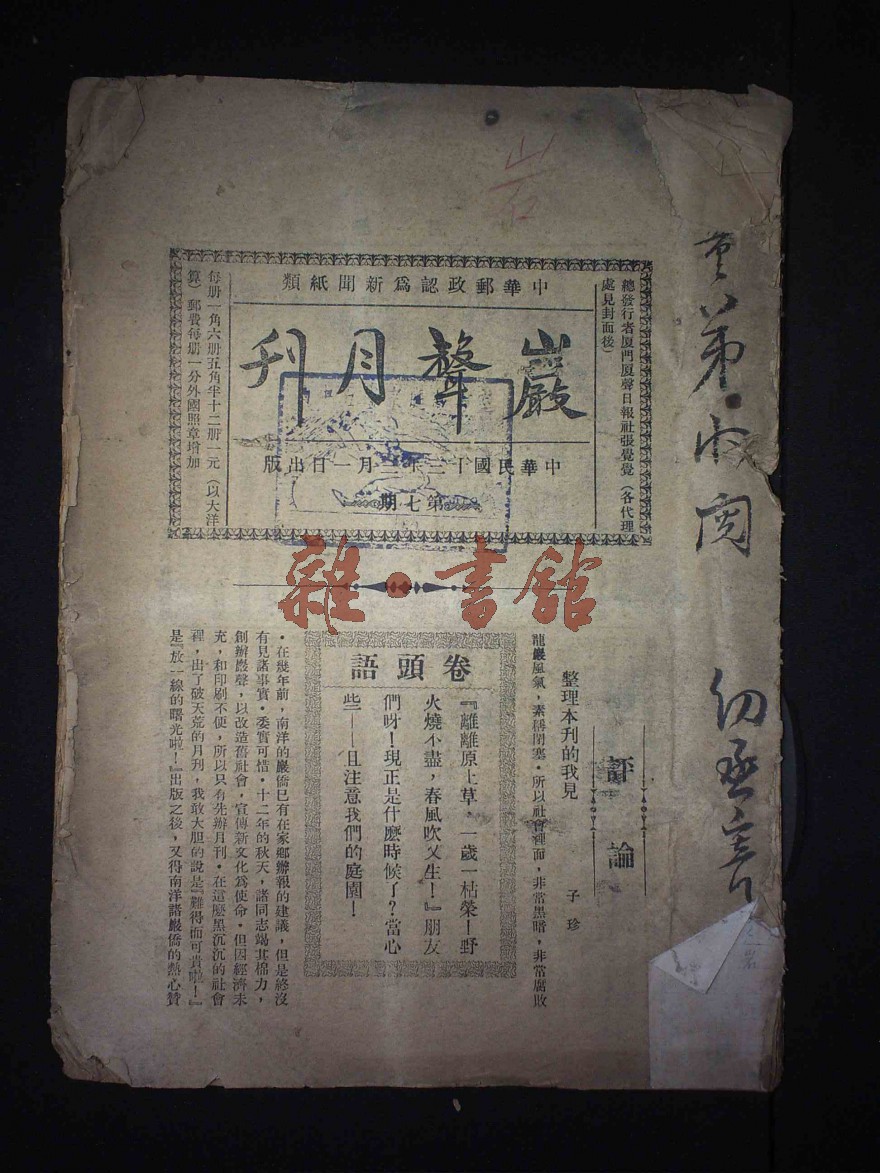 岩
總發行者厦門厦聲日報社張覺覺（各代理
處見封面後）
中華郵政認爲新聞紙類
巖聲月刊
中華民國十三年三月一日出版
第七期
每册一角六册五角半十二册一元（以大洋
算）郵費每册一分外國照章增加
雜·書館
評論
整理本刊的我見
子珍
龍巖風氣，素稱閉塞·所以社會裡面，非常黑暗，非常腐敗
卷頭語
『離離原上草，一歲一枯榮！野
火燒不盡，春風吹又生！』朋友
們呀！現正是什麽時候了？當心
些——且注意我們的庭園！
·在幾年前，南洋的巖僑已有在家鄉辦報的建議，但是終沒
有見諸事實·委實可惜·十二年的秋天，諸同志竭其棉力，
創辦巖聲，以改造舊社會，宣傳新文化爲使命·但因經濟未
充，和印刷不便，所以只有先辦月刊·在這麽黑沉沉的社會
裡，出了破天荒的月刊，我敢大胆的說是『難得而可貴啦！』
是『放一線的曙光啦！』出版之後，又得南洋諸巖僑的熱心贊